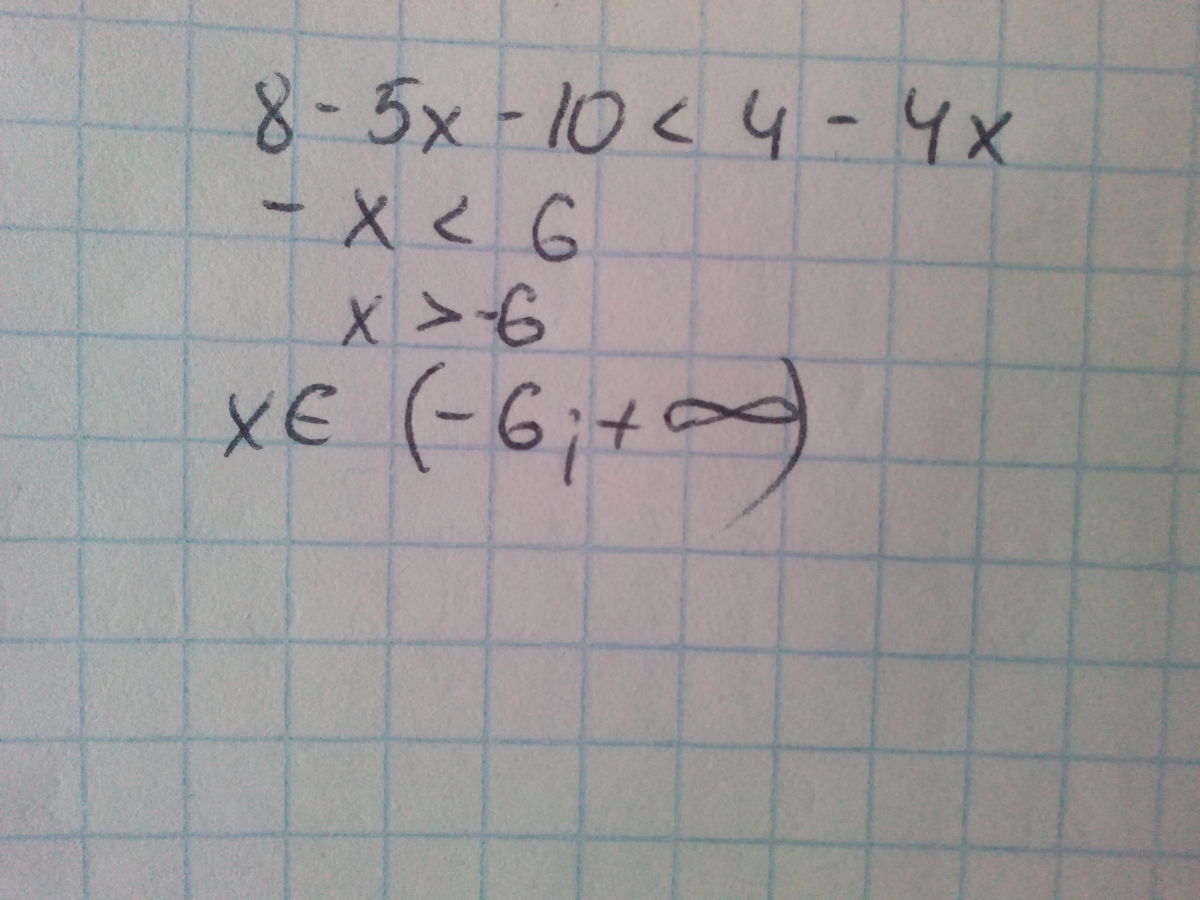 8 - 5x - 10 < 4 - 4x
- x < 6
x > -6
x ∈ (-6; + ∞)